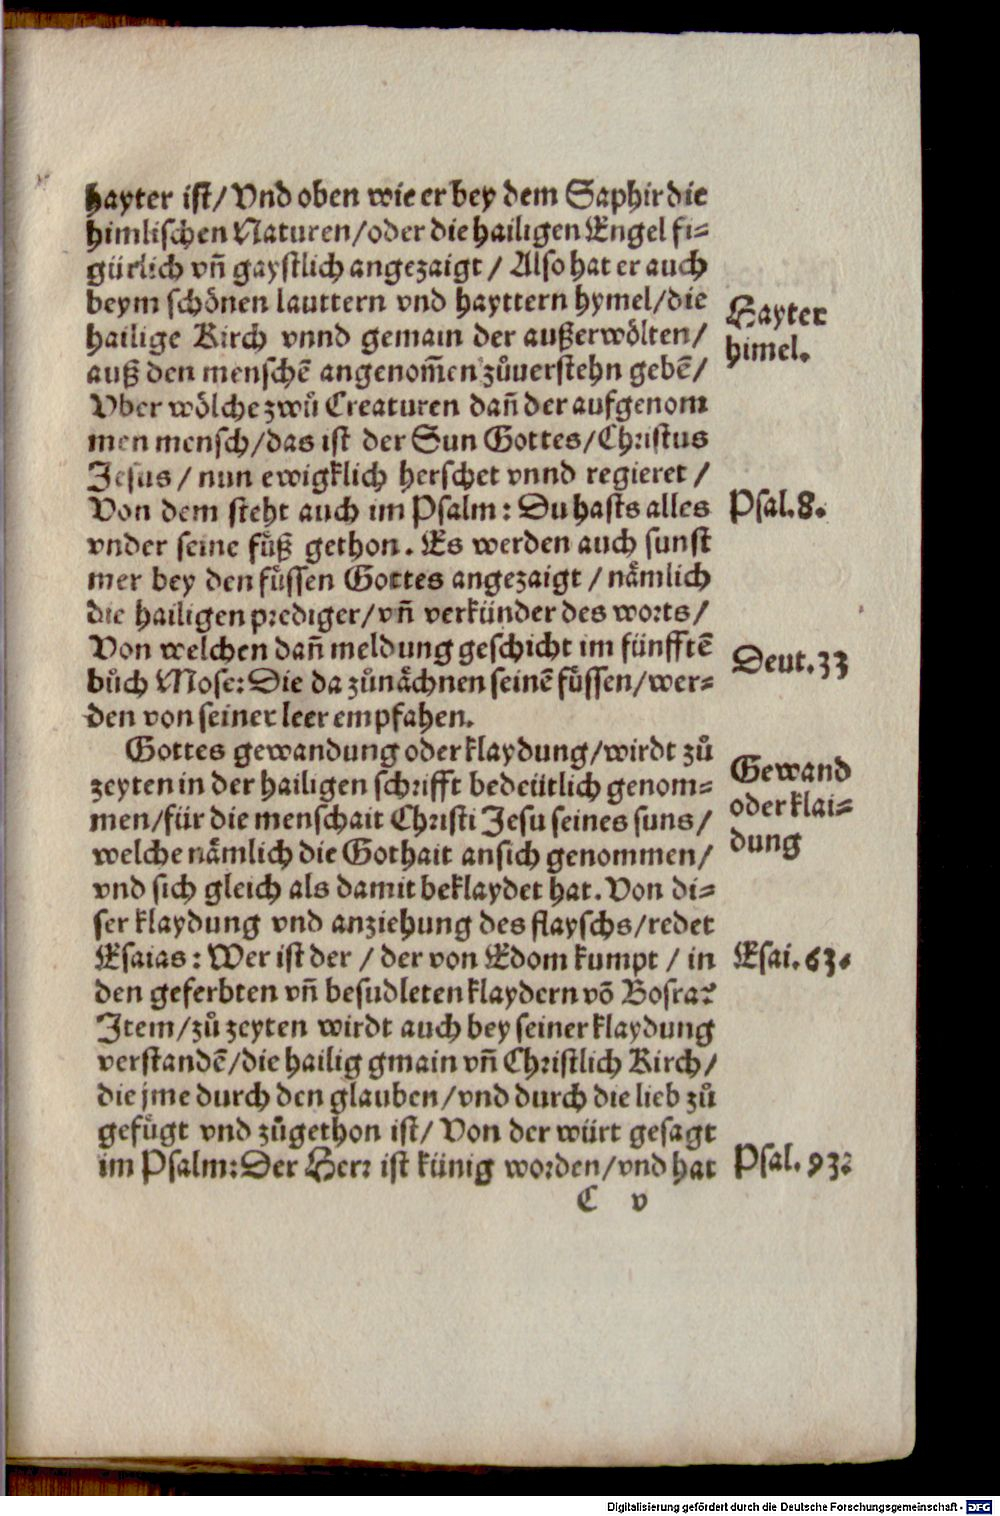 hayter ist/ Vnd oben wie er bey dem Saphir die
himlischen Naturen/oder die hailigen Engel fi=
gürlich vñ gaystlich angezaigt / Also hat er auch
beym schönen lauttern vnd hayttern hymel/die
hailige Kirch vnnd gemain der außerwölten/
auß den menschē angenom̃en zůuerstehn gebē/
Vber wölche zwů Creaturen dañ der aufgenom
men mensch/das ist der Sun Gottes/Christus
Jesus / nun ewigklich herschet vnnd regieret /
Von dem steht auch im Psalm: Du hasts alles
vnder seine fůß gethon. Es werden auch sunst
mer bey den fůssen Gottes angezaigt / nämlich
die hailigen prediger/vñ verkünder des worts/
Von welchen dañ meldung geschicht im fünfftē
bůch Mose: Die da zůnächnen seinē fůssen/wer=
den von seiner leer empfahen.
Gottes gewandung oder klaydung/wirdt zů
zeyten in der hailigen schrifft bedeütlich genom=
men/für die menschait Christi Jesu seines suns/
welche nämlich die Gothait an sich genommen/
vnd sich gleich als damit beklaydet hat. Von di=
ser klaydung vnd anziehung des flayschs/redet
Esaias: Wer ist der / der von Edom kumpt / in
den geferbten vñ besudleten klaydern vō Bosra?
Item/zů zeyten wirdt auch bey seiner klaydung
verstandē/die hailig gmain vñ Christlich Kirch/
die jme durch den glauben/vnd durch die lieb zů
gefůgt vnd zůgethon ist/ Von der würt gesagt
im Psalm: Der Herr ist künig worden/vnd hat
C v
Hayter
himel.
Psal.8.
Deut.33
Gewand
oder klai=
dung
Esai.63.
Psal.93.
Digitalisierung gefördert durch die Deutsche Forschungsgemeinschaft - DFG